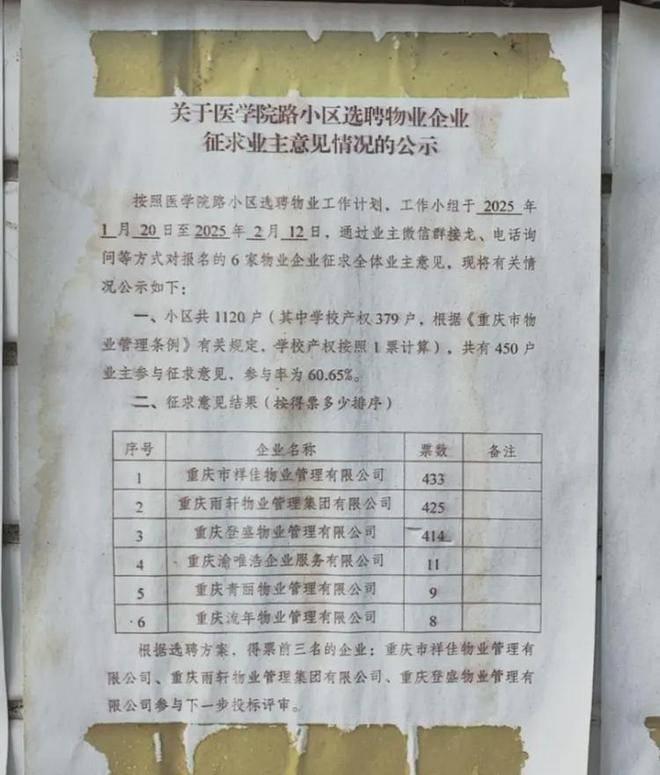 关于医学院路小区选聘物业企业
征求业主意见情况的公示
按照医学院路小区选聘物业工作计划，工作小组于 2025 年
1 月 20 日至 2025 年 2 月 12 日，通过业主微信群接龙、电话询
问等方式对报名的 6 家物业企业征求全体业主意见，现将有关情
况公示如下：
一、小区共 1120 户（其中学校产权 379 户，根据《重庆市物
业管理条例》有关规定，学校产权按照 1 票计算），共有 450 户
业主参与征求意见，参与率为 60.65%。
二、征求意见结果（按得票多少排序）
序号 企业名称 票数 备注
1 重庆市祥佳物业管理有限公司 433
2 重庆雨轩物业管理集团有限公司 425
3 重庆登盛物业管理有限公司 414
4 重庆渝唯浩企业服务有限公司 11
5 重庆青丽物业管理有限公司 9
6 重庆流年物业管理有限公司 8
根据选聘方案，得票前三名的企业：重庆市祥佳物业管理有
限公司、重庆雨轩物业管理集团有限公司、重庆登盛物业管理有
限公司参与下一步投标评审。